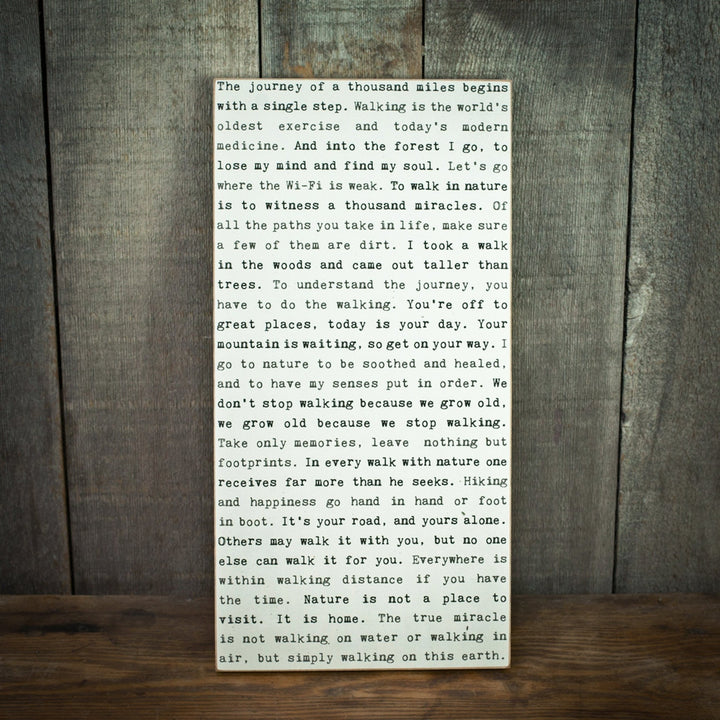 The journey of a thousand miles begins
with a single step. Walking is the world's
oldest exercise and today's modern
medicine. And into the forest I go, to
lose my mind and find my soul. Let's go
where the Wi-Fi is weak. To walk in nature
is to witness a thousand miracles. Of
all the paths you take in life, make sure
a few of them are dirt. I took a walk
in the woods and came out taller than
trees. To understand the journey, you
have to do the walking. You're off to
great places, today is your day. Your
mountain is waiting, so get on your way. I
go to nature to be soothed and healed,
and to have my senses put in order. We
don't stop walking because we grow old,
we grow old because we stop walking.
Take only memories, leave nothing but
footprints. In every walk with nature one
receives far more than he seeks. Hiking
and happiness go hand in hand or foot
in boot. It's your road, and yours alone.
Others may walk it with you, but no one
else can walk it for you. Everywhere is
within walking distance if you have
the time. Nature is not a place to
visit. It is home. The true miracle
is not walking on water or walking in
air, but simply walking on this earth.